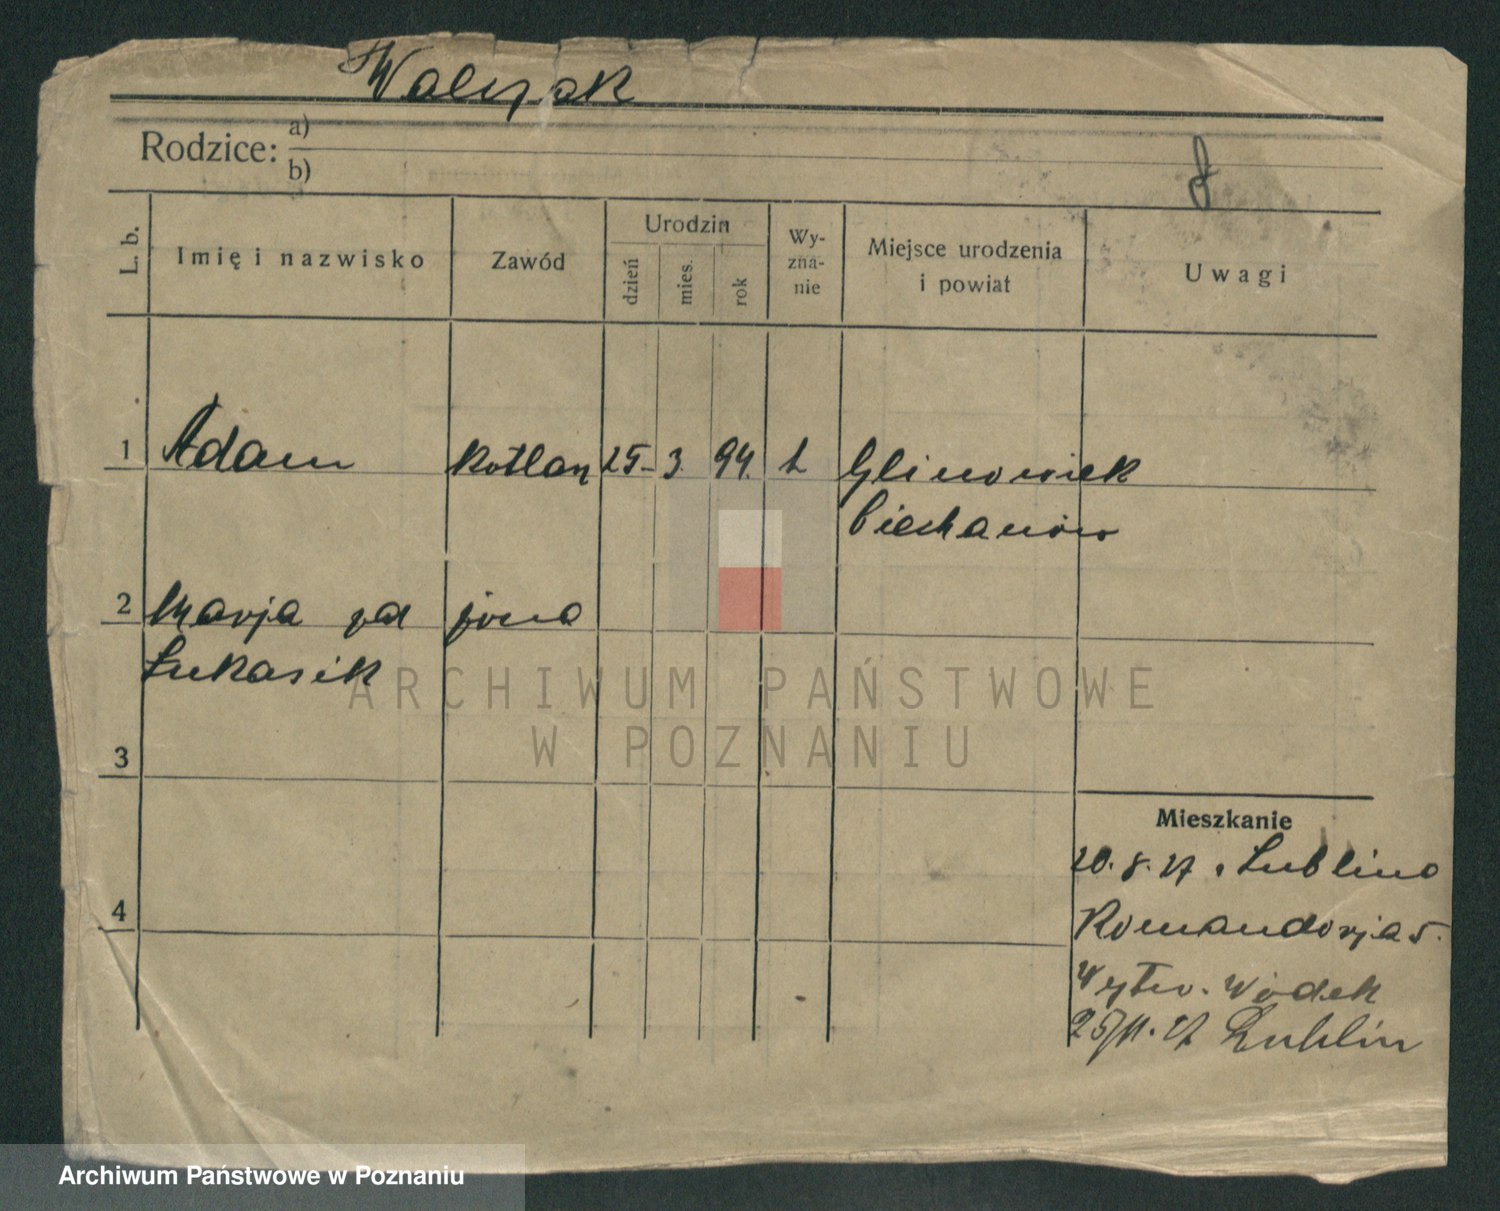 Walczak
Rodzice: a)
b)
L. b.
Imię i nazwisko
Zawód
Urodzin
dzień
mies.
rok
Wy-
zna-
nie
Miejsce urodzenia
i powiat
Uwagi
1 Adam 25 3 94.
Ciechanów
2 Marja żona
Łukasik
3
4
Mieszkanie
20. 8. 27. Lublina
Komandorja 5.
Wytw. Wódek
25/11. 27 Lublin
ARCHIWUM PAŃSTWOWE
W POZNANIU
Archiwum Państwowe w Poznaniu